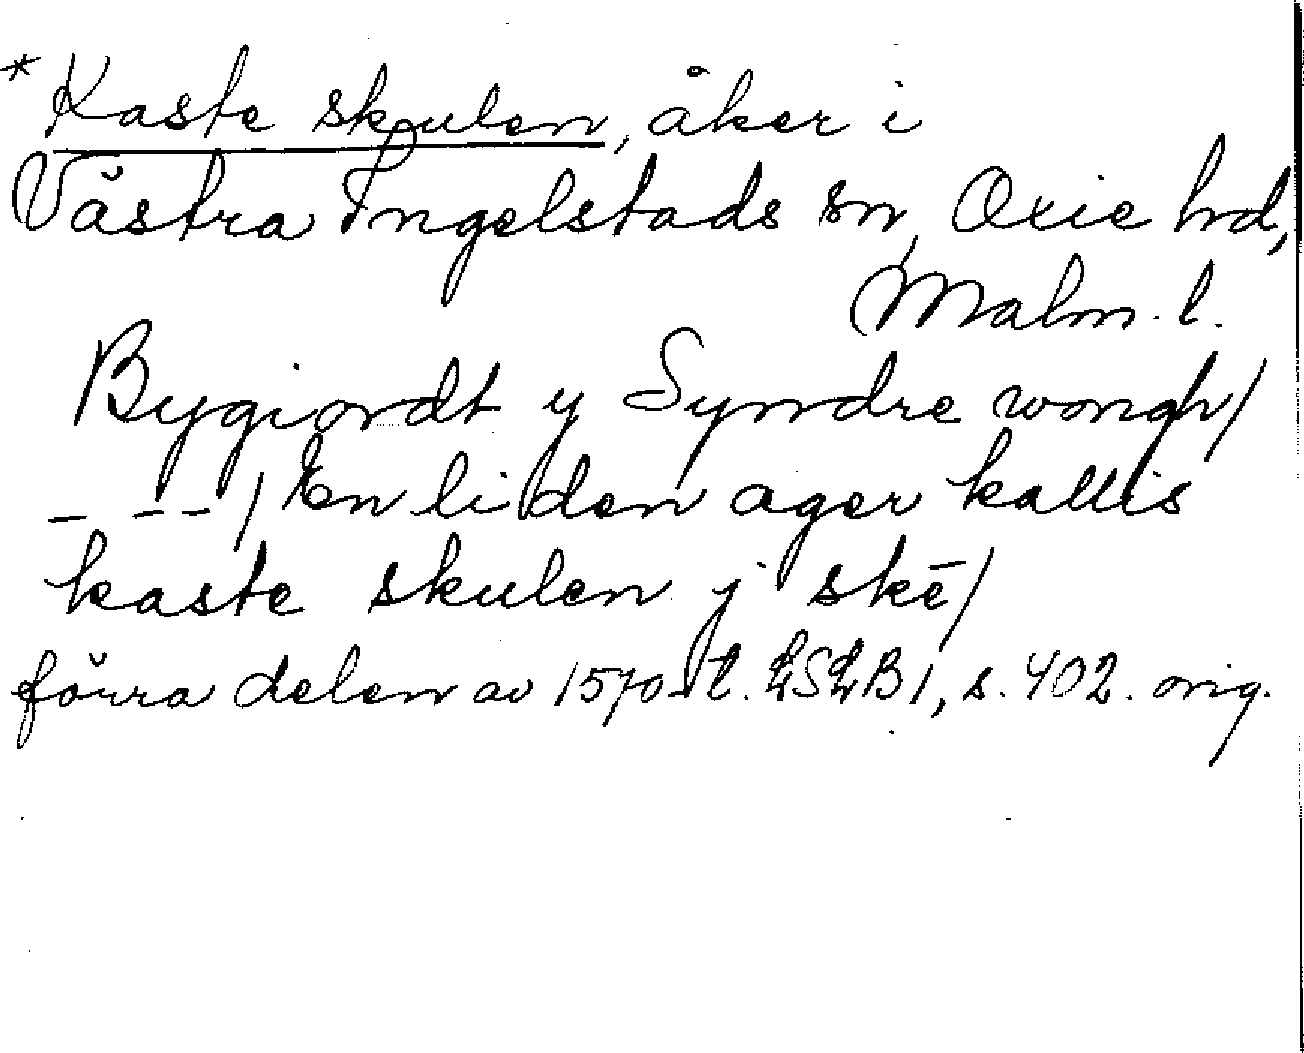 *Kaste skulen, åker i
Västra Ingelstads sn, Oxie hd,
Malm. l.
Bygiordt y Syndre wongh/
_ _ _ / En liden ager kallis
kaste skulen j skē/
förra delen av 1570-t. LSLB 1, s. 402. orig.